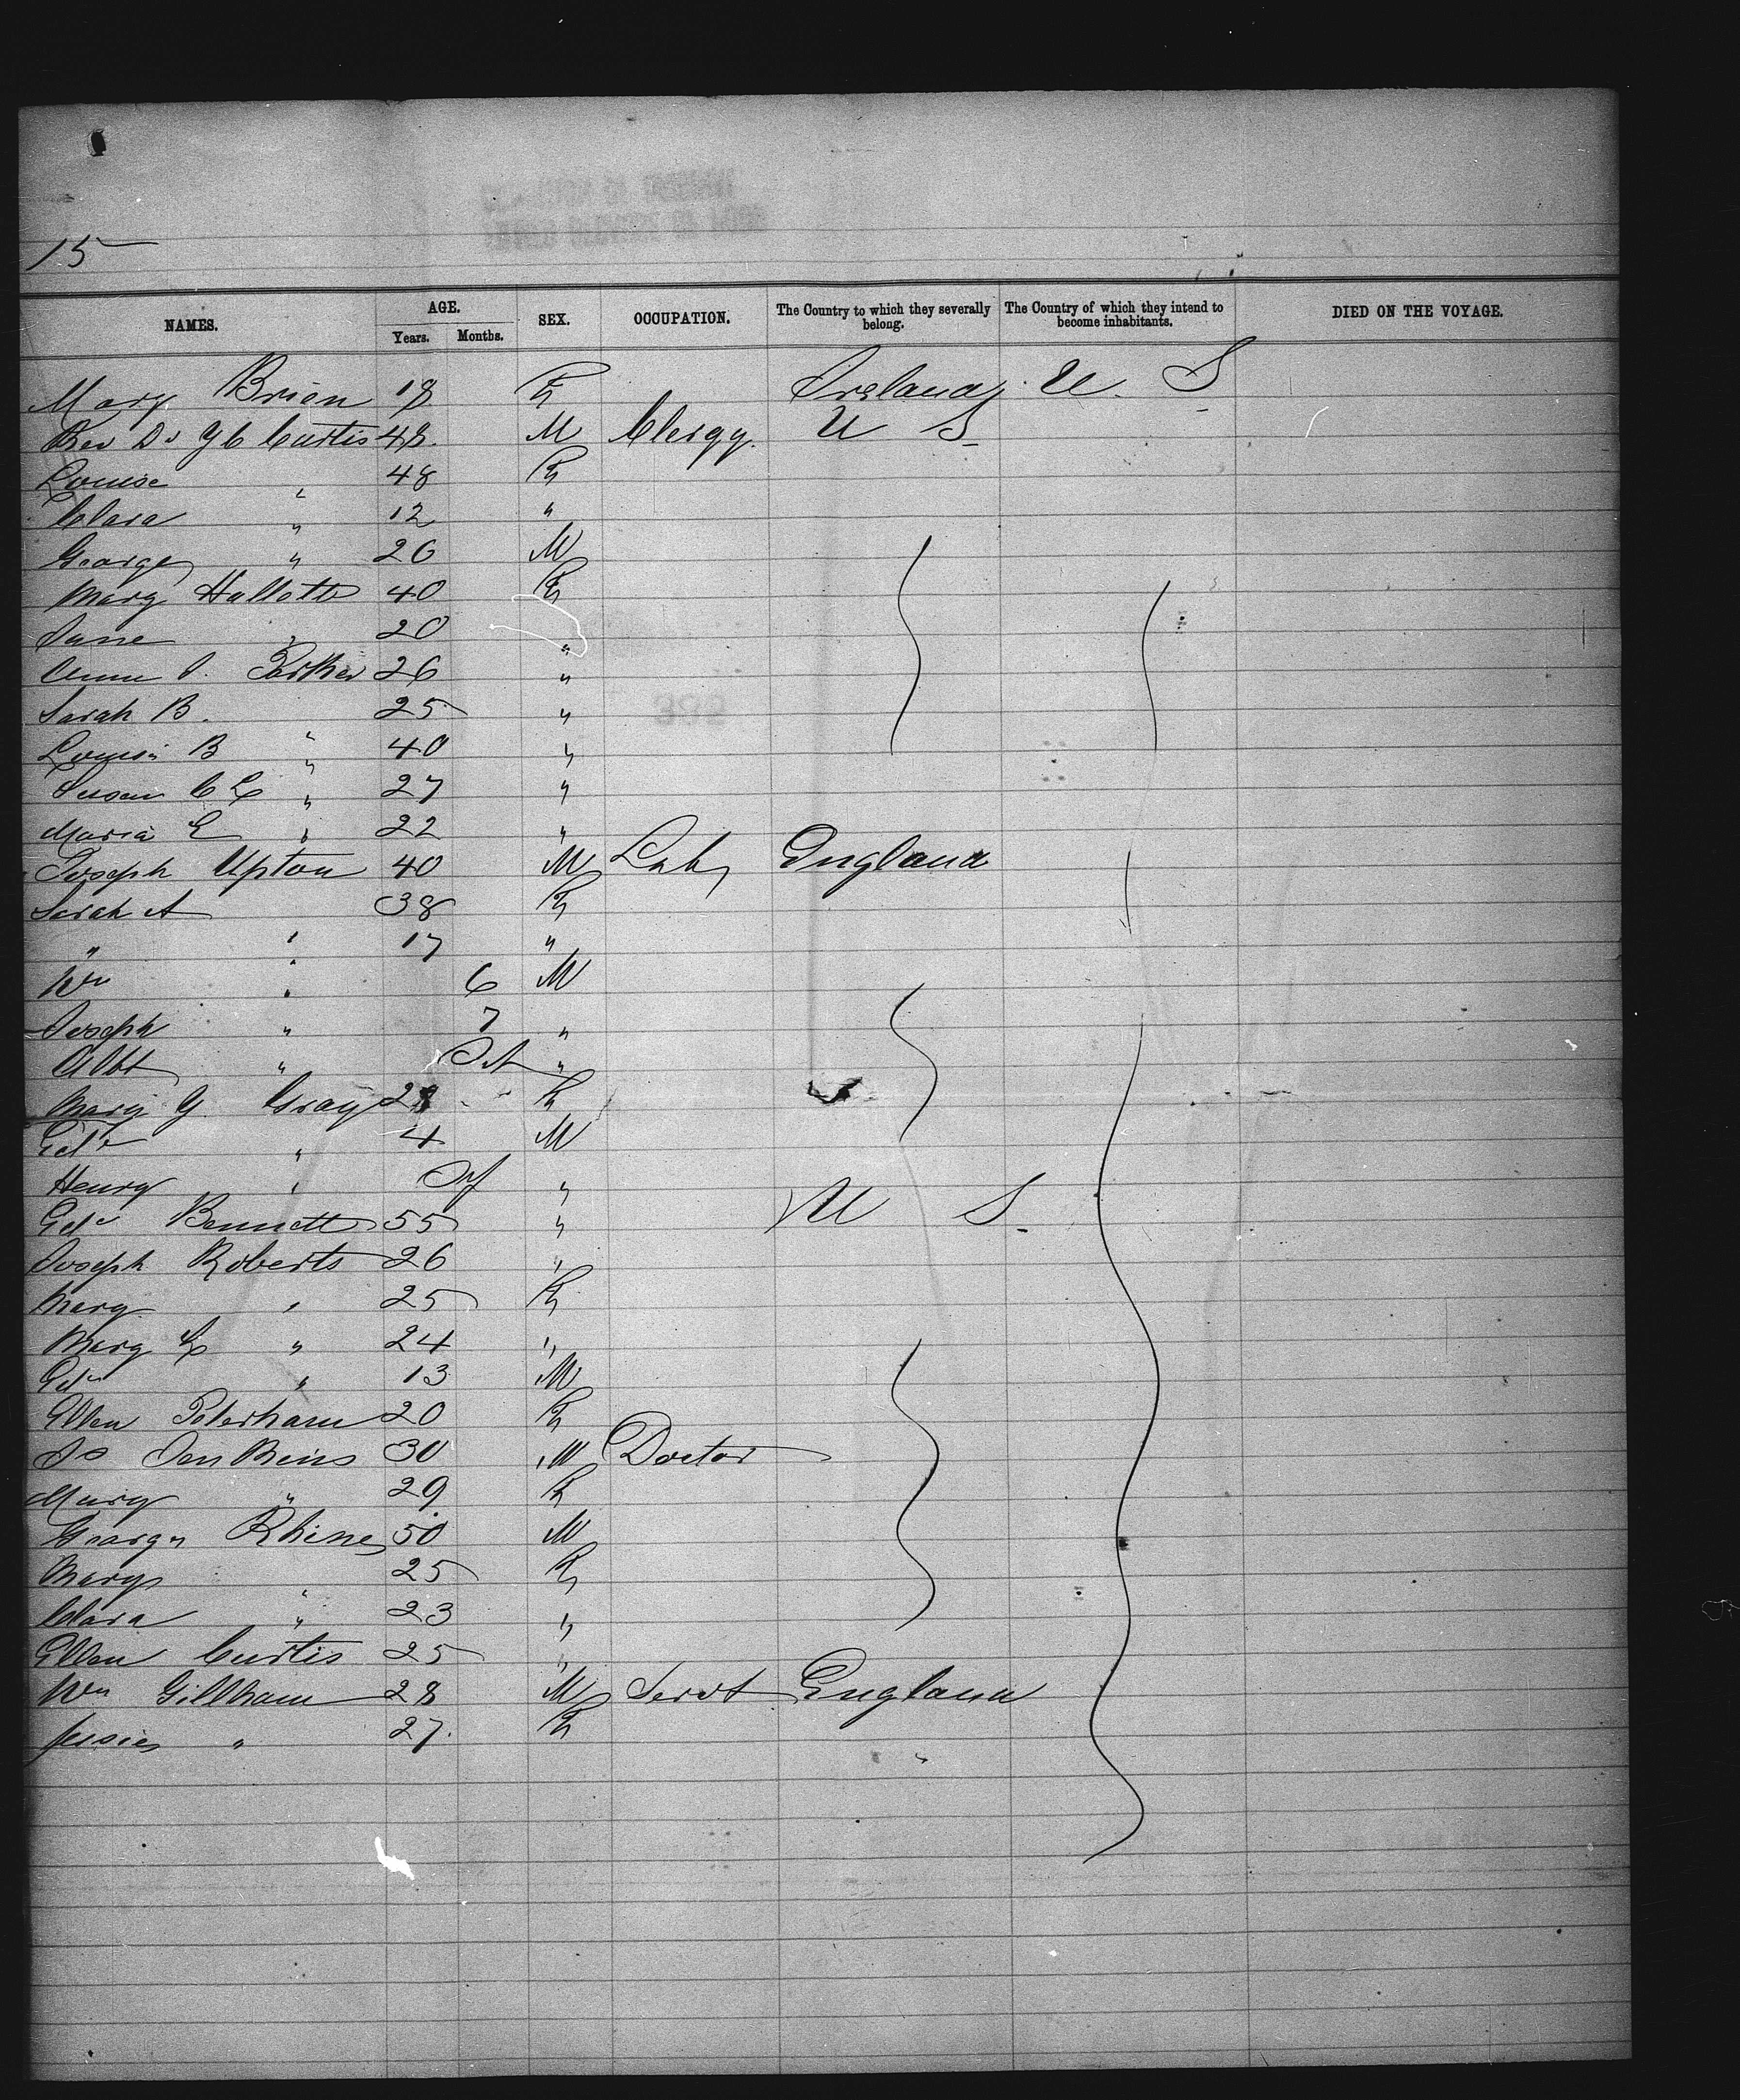 15
NAMES. AGE. Years. Months. SEX. OCCUPATION. The Country to which they severally belong. The Country of which they intend to become inhabitants. DIED ON THE VOYAGE.
Mary Brien 18 F Ireland U. S
Rev Dr Curtis 48 M Clergy U S
Louise " 48 F
Clara " 12 "
George " 26 M
Mary Hallett 40 F
Jane " 20 "
Parker 26 "
Sarah B. " 25 "
Louisa B " 40 "
Susan C L " 27 "
Maria E " 22 "
Joseph Upton 40 M Lab England
Sarah A " 38 F
" " 17 "
Wm " 6 M
Joseph " 7 "
Albt " Inft "
Mary G Gray 28 F
Edw " 4 M
Henry " Inf "
Edw Bennett 55 " U S.
Joseph Roberts 26 "
Mary " 25 F
Mary E " 24 "
Edw " 13 M
Ellen Peterham 20 F
Jenkins 30 M Doctor
Mary " 29 F
George Rhine 50 M
Mary " 25 F
Clara " 23 "
Ellen Curtis 25 "
Wm Gillham 28 M Servt England
Jessie " 27. F